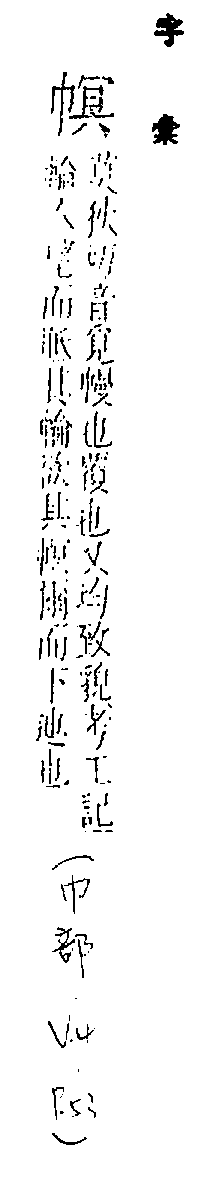 字彙
幎
莫狄切音覓幔也覆也又均致貌考工記
輪人望而眂其輪欲其幎爾而下迆也
(巾部 V.4 P.53)